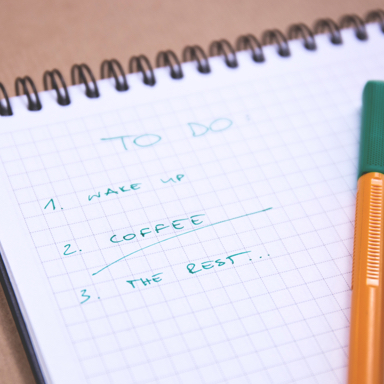 TO DO:
1. WAKE UP
2. COFFEE
3. THE REST...